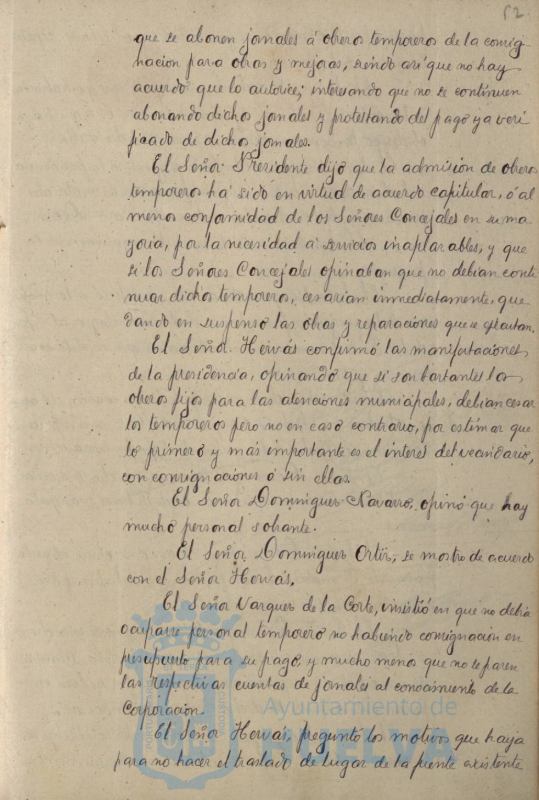 52.
que se abonen jornales á obreros temporeros de la consig-
nacion para obras y mejoras, siendo asi que no hay
acuerdo que lo autorice; interesando que no se continuen
abonando dichos jornales y protestando del pago ya veri
ficado de dichos jornales.
El Señor Presidente dijo que la admisión de obreros
temporeros ha sido en virtud de acuerdo capitular, ó al
menos conformidad de los Señores Concejales en su ma
yoria, por la necesidad á servicios inaplazables, y que
si los Señores Concejales opinaban que no debian conti
nuar dichos temporeros, cesarian inmediatamente, que
dando en suspenso las obras y reparaciones que se ejecutan.
El Señor Hervás confirmó las manifestaciones
de la presidencia, opinando que si son bastantes los
obreros fijos para las atenciones municipales, debian cesar
los temporeros pero no en caso contrario, por estimar que
lo primero y más importante es el interés del vecindario,
con consignaciones ó sin ellas.
El Señor Dominguez Navarro, opinó que hay
mucho personal sobrante.
El Señor Dominguez Ortiz, se mostro de acuerdo
con el Señor Hervás.
El Señor Vazquez de la Corte, insistió en que no debia
ocuparse personal temporero no habiendo consignación en
presupuesto para su pago, y mucho menos que no se pasen
las respectivas cuentas de jornales al conocimiento de la
Corporación.
El Señor Hervás, preguntó los motivos que haya
para no hacer el traslado de lugar de la fuente existente
Ayuntamiento de
HUELVA